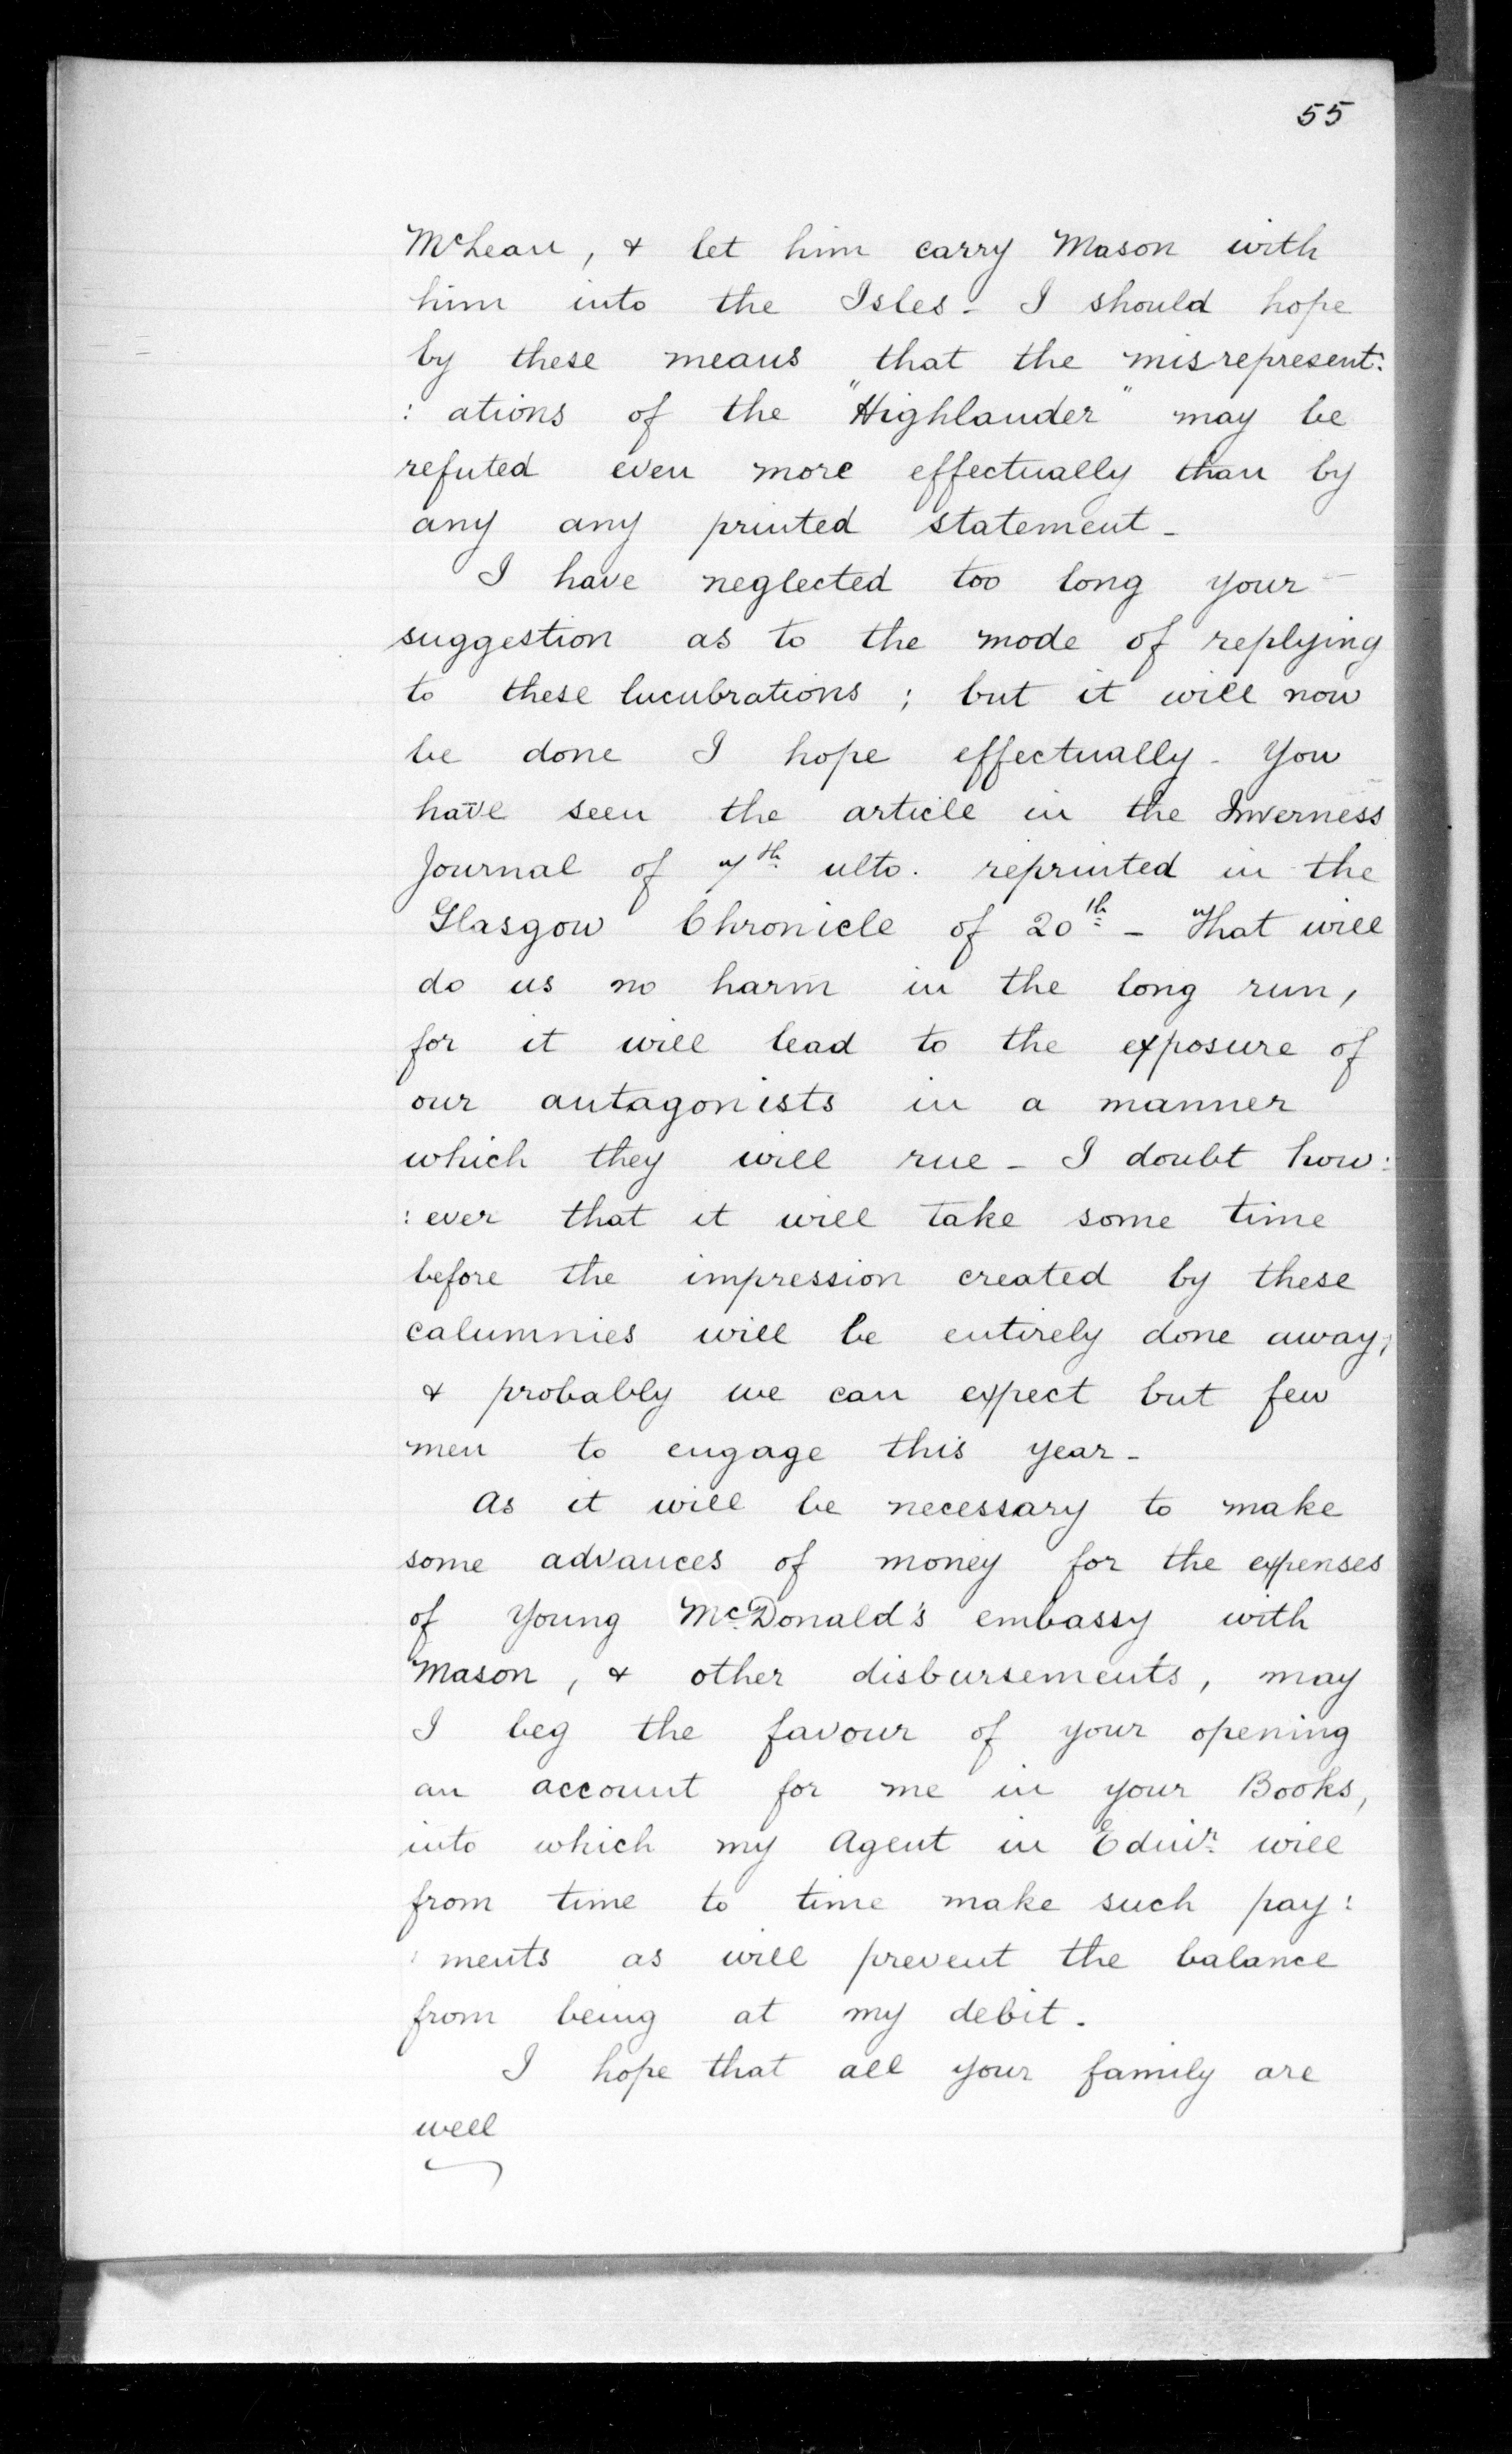 55
McLean, & let him carry Mason with
him into the Isles - I should hope
by these means that the misrepresent:
: ations of the "Highlander" may be
refuted even more effectually than by
any any printed statement -
I have neglected too long your
suggestion as to the mode of replying
to these lucubrations ; but it will now
be done I hope effectually - You
have seen the article in the Inverness
Journal of 7th ulto. reprinted in the
Glasgow Chronicle of 20th - That will
do us no harm in the long run,
for it will lead to the exposure of
our antagonists in a manner
which they will rue - I doubt how:
: ever that it will take some time
before the impression created by these
calumnies will be entirely done away,
& probably we can expect but few
men to engage this year -
As it will be necessary to make
some advances of money for the expenses
of Young McDonald's embassy with
Mason, & other disbursements, may
I beg the favour of your opening
an account for me in your Books,
into which my Agent in Edinr will
from time to time make such pay:
: ments as will prevent the balance
from being at my debit.
I hope that all your family are
well